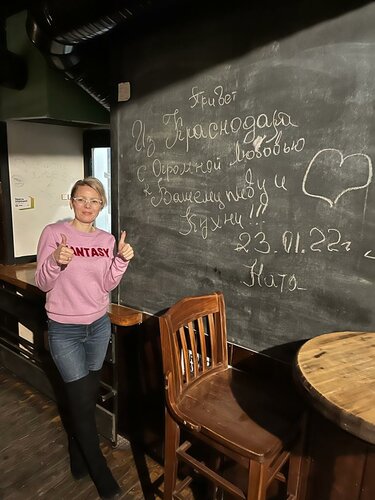 Привет
Из Краснодара
с Огромной Любовью
к Вашему пиву и
Кухни!!!
23.01.22г
Ната
FANTASY